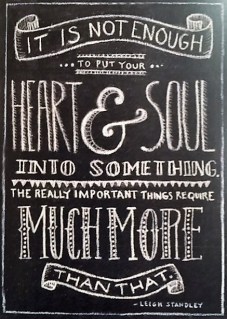 IT IS NOT ENOUGH
TO PUT YOUR
HEART & SOUL
INTO SOMETHING.
THE REALLY IMPORTANT THINGS REQUIRE
MUCH MORE
THAN THAT.
- LEIGH STANDLEY